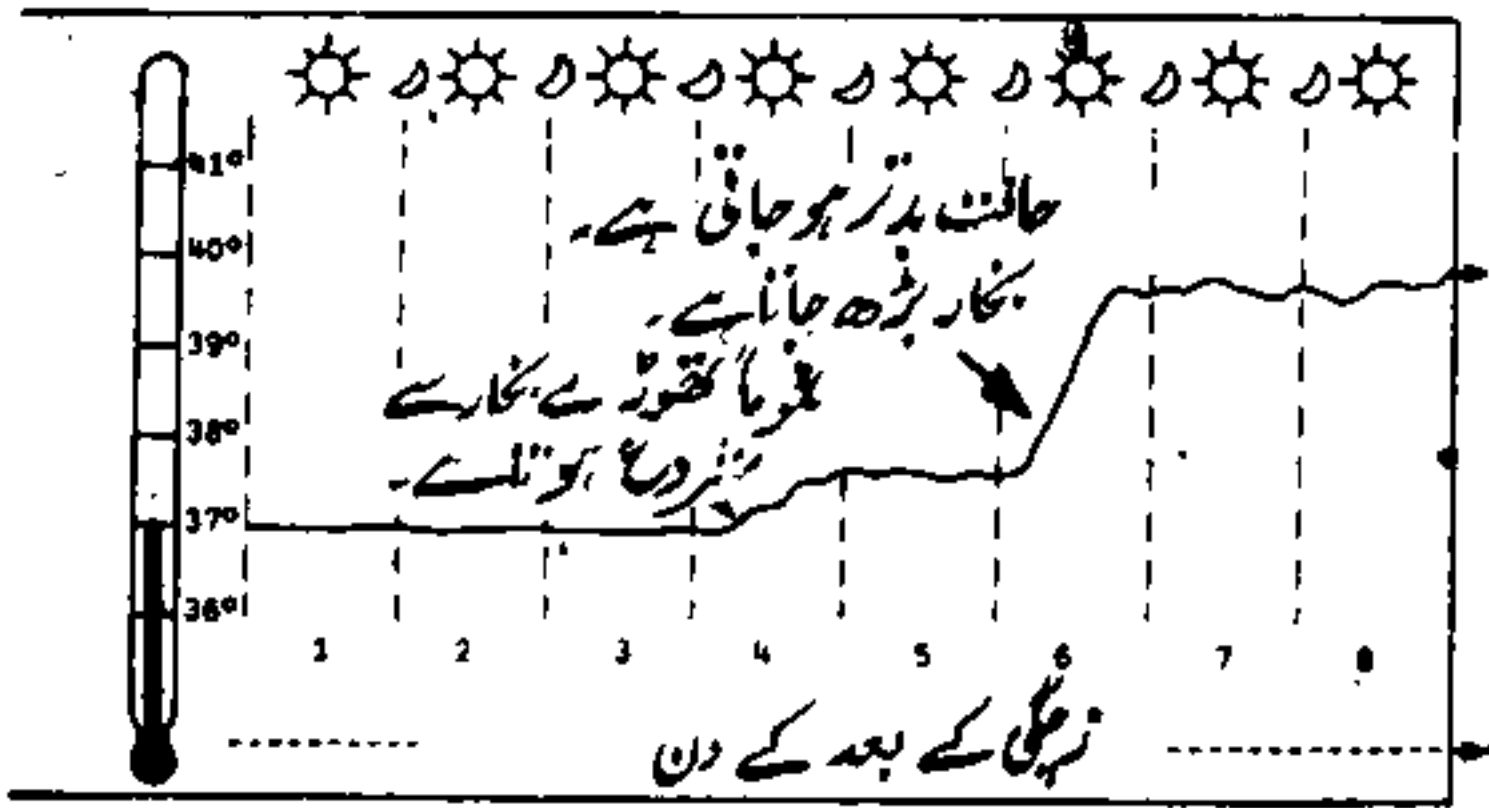 41°
40°
39°
38°
37°
36°
حالت بدتر ہو جاتی ہے۔
بخار بڑھ جاتا ہے۔
عموماً تھوڑے بخار سے
شروع ہوتا ہے۔
1 2 3 4 5 6 7 8
زچگی کے بعد کے دن